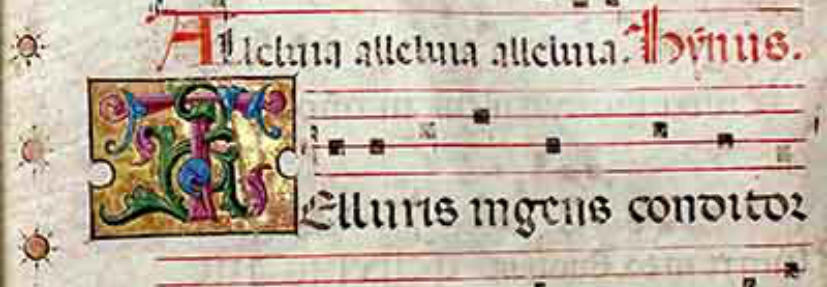 Alleluia alleluia alleluia. hȳnus.
TElluris ingens conditor